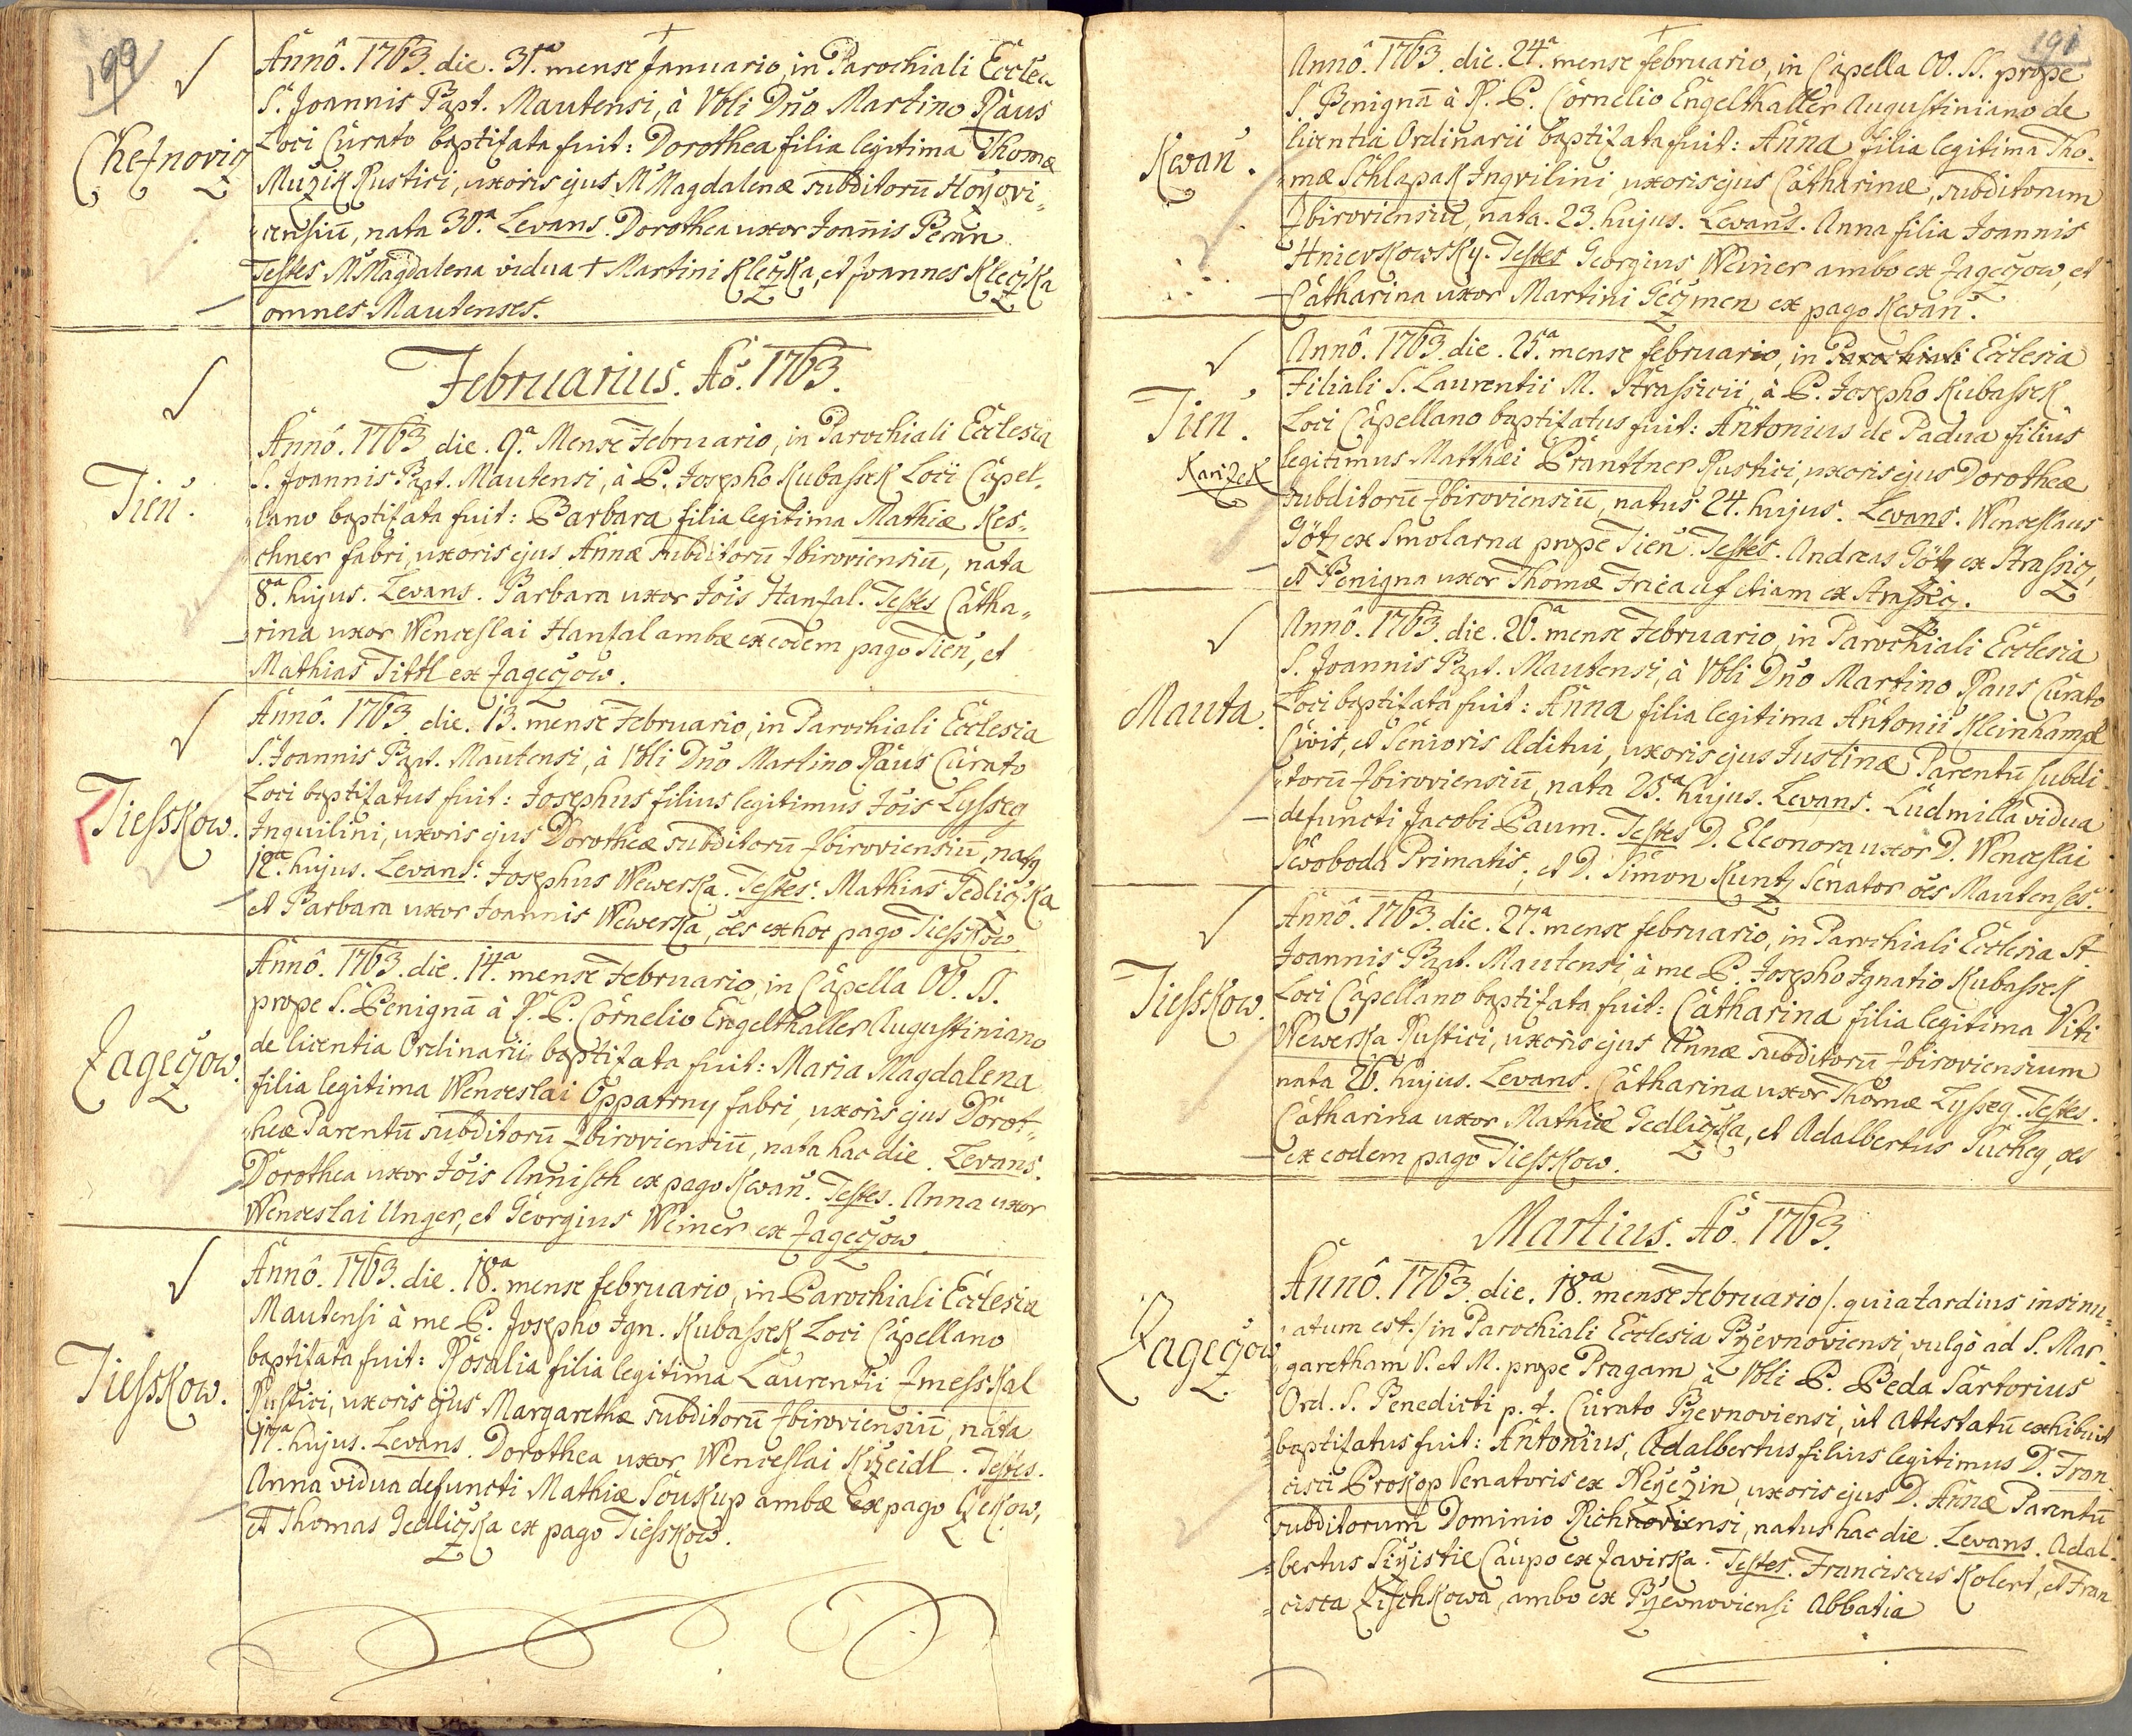 199
Annô. 1763. die. 31ª mense Januario, in Parochiali Eccleā
S. Joannis Bapt. Mautensi, à Vbli Dno Martino Raus
Chesnoviz
Loci Curato baptisata fuit: Dorothea filia legitima Thomæ
Muzik Rustici, uxoris ejus M Magdalenæ subditorū Hořovi-
censiū, nata 30ª. Levans. Dorothea uxor Joanis Benn
Testes M Magdalena vidua † Martini Kleczka, et Joannes Kleczka
omnes Mautenses.
Februarius. Aô. 1763.
Annô. 1763. die. 9ª. Mense Februario, in Parochiali Ecclesia
S. Joannis Bapt. Mautensi, à P. Josepho Kubassek Loci Capel-
Tien.
lano baptisata fuit: Barbara filia legitima Mathiæ Kes-
chner fabri, uxoris ejus Annæ subditorū Zbiroviensiū, nata
8ª. hujus. Levans. Barbara uxor Jois Hanzal. Testes Catha-
rina uxor Wenceslai Hanzal ambæ ex eodem pago Tien, et
Mathias Tittl ex Zageczow.
Annô. 1763. die. 13. mense Februario, in Parochiali Ecclesia
S. Joannis Bapt. Mautensi, à Vbli Dno Martino Raus Curato
Tiesskow.
Loci baptisatus fuit: Josephus filius legitimus Jois Lysseg
Inquilini, uxoris ejus Dorotheæ subditorū Zbiroviensiū, natg
12ª. hujus. Levans. Josephus Wewerka. Testes. Mathias Jedliczka
et Barbara uxor Joannis Wewerka, oes ex hoc pago Tiesskow
Annô. 1763. die. 14ª. mense Februario, in Capella OO. SS.
prope S. Benignā à R. P. Cornelio Engelthaller Augustiniano
Zageczow.
de licentia Ordinarii baptisata fuit: Maria Magdalena
filia legitima Wenceslai Oppatrny fabri, uxoris ejus Dorot-
heæ Parentū subditorū Zbiroviensiū, nata hac die. Levans.
Dorothea uxor Jois Annisch ex pago Kwan. Testes. Anna uxor
Wenceslai Unger, et Georgius Weiner ex Zageczow.
Annô. 1763. die. 18ª. mense februario, in Parochiali Ecclesia
Mautensi à me P. Josepho Ign. Kubassek Loci Capellano
Tiesskow.
baptisata fuit: Rosalia filia legitima Laurentii Zmesskal
Rustici, uxoris ejus Margarethæ subditorū Zbiroviensiū, nata
17ª. hujus. Levans. Dorothea uxor Wenceslai Kržeidl. Testes.
Anna vidua defuncti Mathiæ Soukup ambæ ex pago Czekow,
et Thomas Jedliczka ex pago Tiesskow.
191
Annô. 1763. die. 24ª. mense februario, in Capella OO. SS. prope
S. Benignā à R. P. Cornelio Engelthaller Augustiniano de
Kwan.
licentia Ordinarii baptisata fuit: Anna filia legitima Tho-
mæ Schlapak Inqvilini, uxoris ejus Catharinæ, subditorum
Zbiroviensiū, nata. 23. hujus. Levans. Anna filia Joannis
Hniewkowsky. Testes Georgius Weiner ambo ex Zageczow, et
Catharina uxor Martini Geczmen ex pago Kwan.
Annô. 1763. die. 25ª. mense februario, in Parochiali Ecclesia
Filiali S. Laurentii M. Strassicii, à P. Josepho Kubassek
Tien.
Loci Capellano baptisatus fuit: Antonius de Padua filius
Karizek
legitimus Matthæi Pranttner Rustici, uxoris ejus Dorotheæ
subditorū Zbiroviensiū, natus 24. hujus. Levans. Wenceslaus
Götz ex Smolarna prope Tien. Testes. Andreas Götz ex Strassicz,
et Benigna uxor Thomæ Trieauf etiam ex Strassicz.
Annô. 1763. die. 26ª. mense Februario, in Parochiali Ecclesia
S. Joannis Bapt. Mautensi, à Vbli Dno Martino Raus Curato
Mauta.
Loci baptisata fuit: Anna filia legitima Antonii Kleinhampl
Civis, et Senioris Æditui, uxoris ejus Justinæ Parentū subdi-
torū Zbiroviensiū, nata 25ª hujus. Levans. Ludmilla vidua
defuncti Jacobi Baum. Testes D. Eleonora uxor D. Wenceslai
Swoboda Primatis, et D. Simon Kuntz Senator oēs Mautenses.
Annô. 1763. die. 27ª. mense februario, in Parochiali Ecclesia St
Joannis Bapt. Mautensi, à me P. Josepho Ignatio Kubassek
Tiesskow.
Loci Capellano baptisata fuit: Catharina filia legitima Viti
Wewerka Rustici, uxoris ejus Annæ subditorū Zbiroviensium
nata 26. hujus. Levans. Catharina uxor Thomæ Lysseg. Testes.
Catharina uxor Mathiæ Jedliczka, et Adalbertus Suchey, oes
ex eodem pago Tiesskow.
Martius. Aô. 1763.
Annô. 1763. die. 18ª. mense Februario /. quia tardius insinu-
atum est./ in Parochiali Ecclesia Brževnoviensi, vulgo ad S. Mar-
Zageczow
garetham V. et M. prope Pragam, à Vbli P. Beda Sartorius
Ord. S. Benedicti p. t. Curato Brževnoviensi, ut Attestatū exhibuit
baptisatus fuit: Antonius, Adalbertus filius legitimus D. Fran
cisci Prokop Venatoris ex Neyezin, uxoris ejus D. Annæ Parentū
subditorum Dominio Richnoviensi, natus hac die. Levans. Adal-
bertus Caupo ex Zavirka. Testes. Franciscus Kolert, et Fran
cisca Zischkowa, ambo ex Brževnoviensi Abbatia